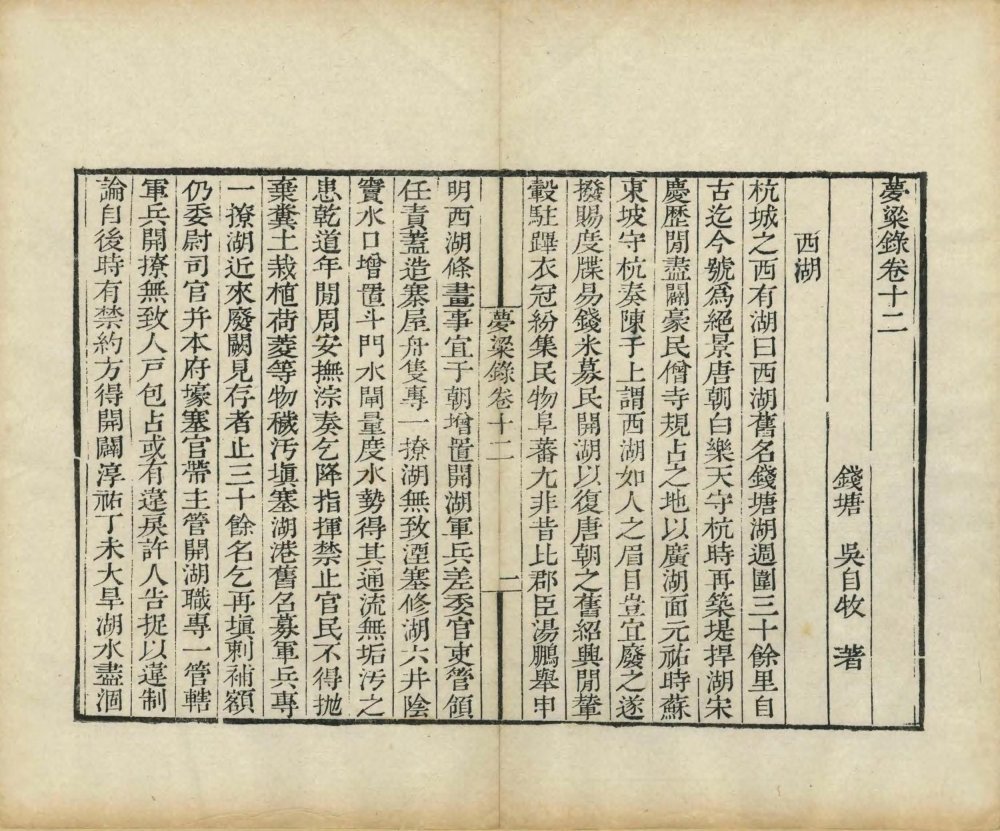 夢粱錄卷十二
錢塘 吳自牧 著
西湖
杭城之西有湖曰西湖舊名錢塘湖週圍三十餘里自
古迄今號爲絕景唐朝白樂天守杭時再築堤捍湖宋
慶歷閒盡闢豪民僧寺規占之地以廣湖面元祐時蘇
東坡守杭奏陳于上謂西湖如人之眉目豈宜廢之遂
撥賜度牒易錢米募民開湖以復唐朝之舊紹興閒輦
轂駐蹕衣冠紛集民物阜蕃尤非昔比郡臣湯鵬舉申
夢粱錄卷十二 一
明西湖條畫事宜于朝增置開湖軍兵差委官吏管領
任責蓋造寨屋舟隻專一撩湖無致湮塞修湖六井陰
竇水口增置斗門水閘量度水勢得其通流無垢汚之
患乾道年閒周安撫淙奏乞降指揮禁止官民不得拋
棄糞土栽植荷菱等物穢汚塡塞湖港舊名募軍兵專
一撩湖近來廢闕見存者止三十餘名乞再塡刺補額
仍委尉司官幷本府壕塞官帶主管開湖職專一管轄
軍兵開撩無致人戸包占或有違戾許人告捉以違制
論自後時有禁約方得開闢淳祐丁未大旱湖水盡涸